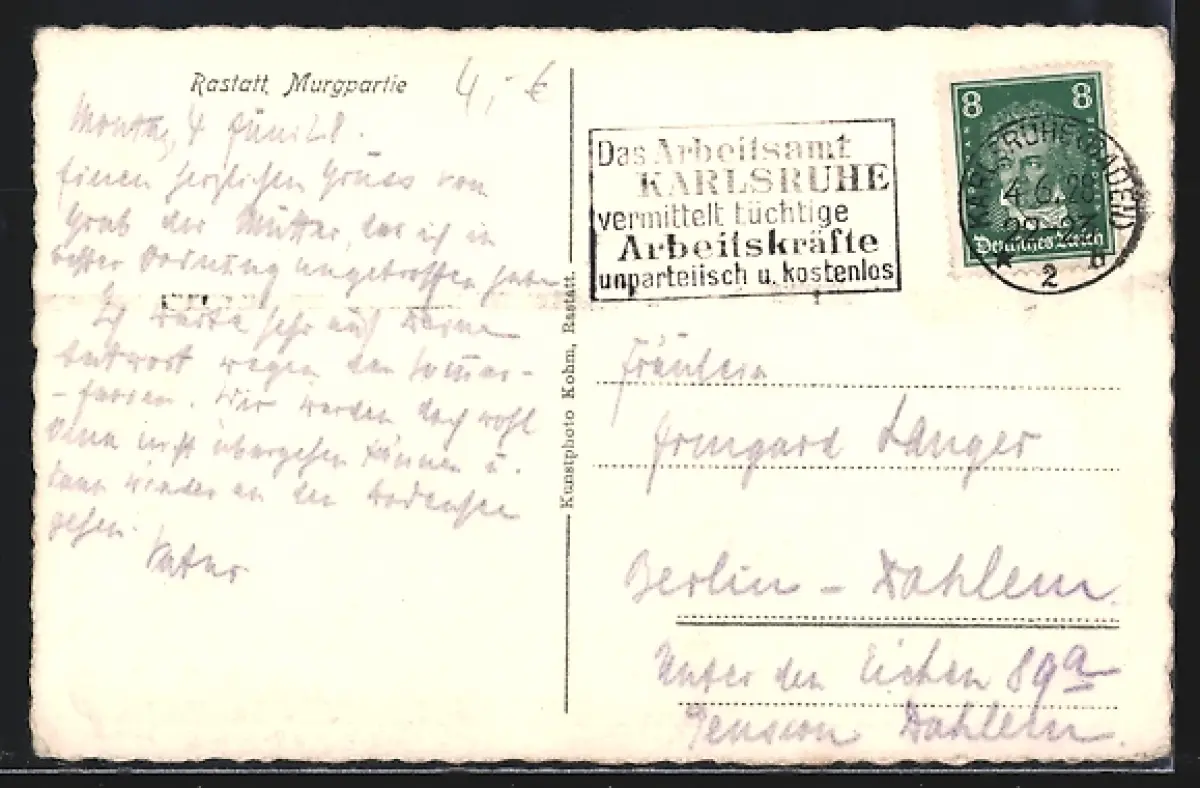 Rastatt, Murgpartie
4,- €
Montag, 4 Juni 28.
Einen herzlichen Gruss vom
Grab der Mutter, das ich in
bester Ordnung angetroffen habe
Ich warte sehr auf Deine
Antwort wegen den Sommer-
-ferien. Wir werden doch wohl
nicht übergehen können u.
dann wieder an den Bodensee
gehen.
Vater
Kunstphoto Kohm, Rastatt.
Das Arbeitsamt
KARLSRUHE
vermittelt tüchtige
Arbeitskräfte
unparteiisch u. kostenlos
8 8
Deutsches Reich
KARLSRUHE (BADEN)
4.6.28
2
Fräulein
Irmgard Langer
Berlin - Dahlem.
Unter den Eichen 89a
Pension Dahlem.